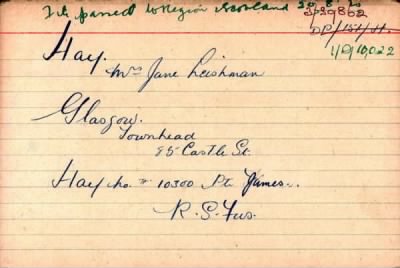 File passed to Region Scotland 20.8.20
3/29862
DP/151/H.
1/O/10,022
Hay.
Mrs Jane Leishman
Glasgow.
Townhead
85 Castle St.
Hay no. 10300 Pte James.
R. S. Fus.